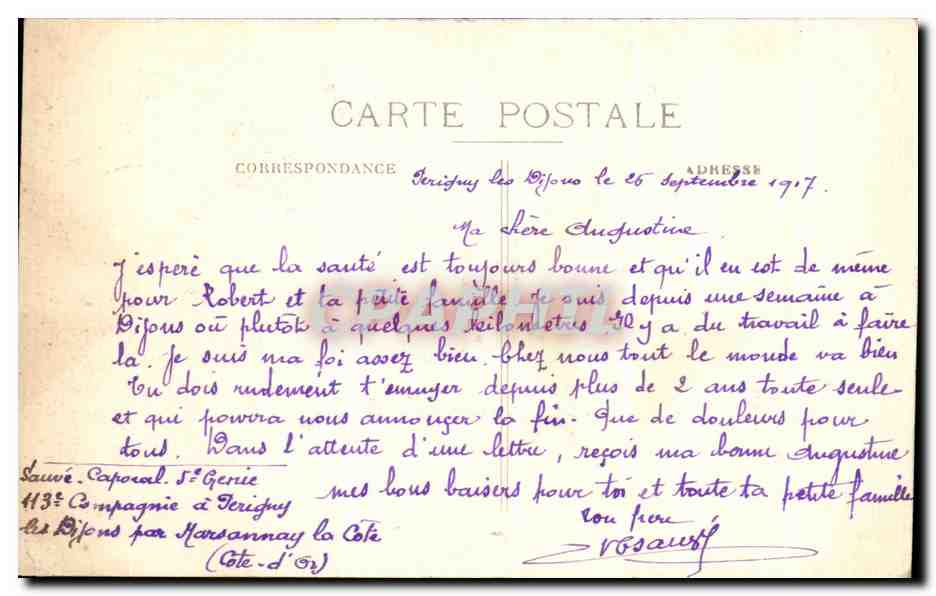 CARTE POSTALE
CORRESPONDANCE
ADRESSE
Perigny les Dijons le 25 septembre 1917.
Ma chère Augustine
J'espère que la santé est toujours bonne et qu'il en est de même
pour Robert et ta petite famille Je suis depuis une semaine à
Dijons où plutôt à quelques kilomètres Il y a du travail à faire
la. Je suis ma foi assez bien. Chez nous tout le monde va bien
Tu dois rudement t'ennuyer depuis plus de 2 ans toute seule
et qui pourra nous annonçer la fin. Que de douleurs pour
tous. Dans l'attente d'une lettre, reçois ma bonne Augustine
mes bons baisers pour toi et toute ta petite famille
ton frere
Sauvé. Caporal. 5e Genie
113e Compagnie à Perigny
les Dijons par Marsannay la Cote
(Cote-d'Or)